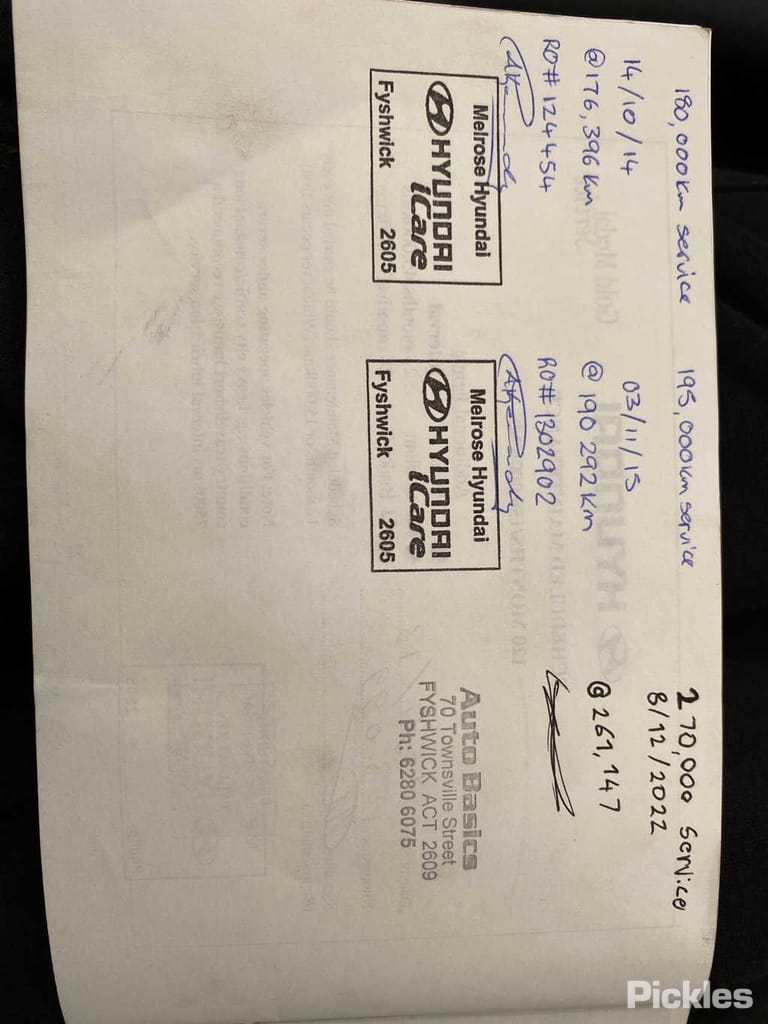 180,000km service
14/10/14
@176,396km
RO# 124454
Melrose Hyundai
HYUNDAI
iCare
Fyshwick 2605
195,000km service
03/11/15
@ 190 292km
RO# 1302902
Melrose Hyundai
HYUNDAI
iCare
Fyshwick 2605
270,000 service
8/12/2022
@ 261,147
Auto Basics
70 Townsville Street
FYSHWICK ACT 2609
Ph: 6280 6075
Pickles